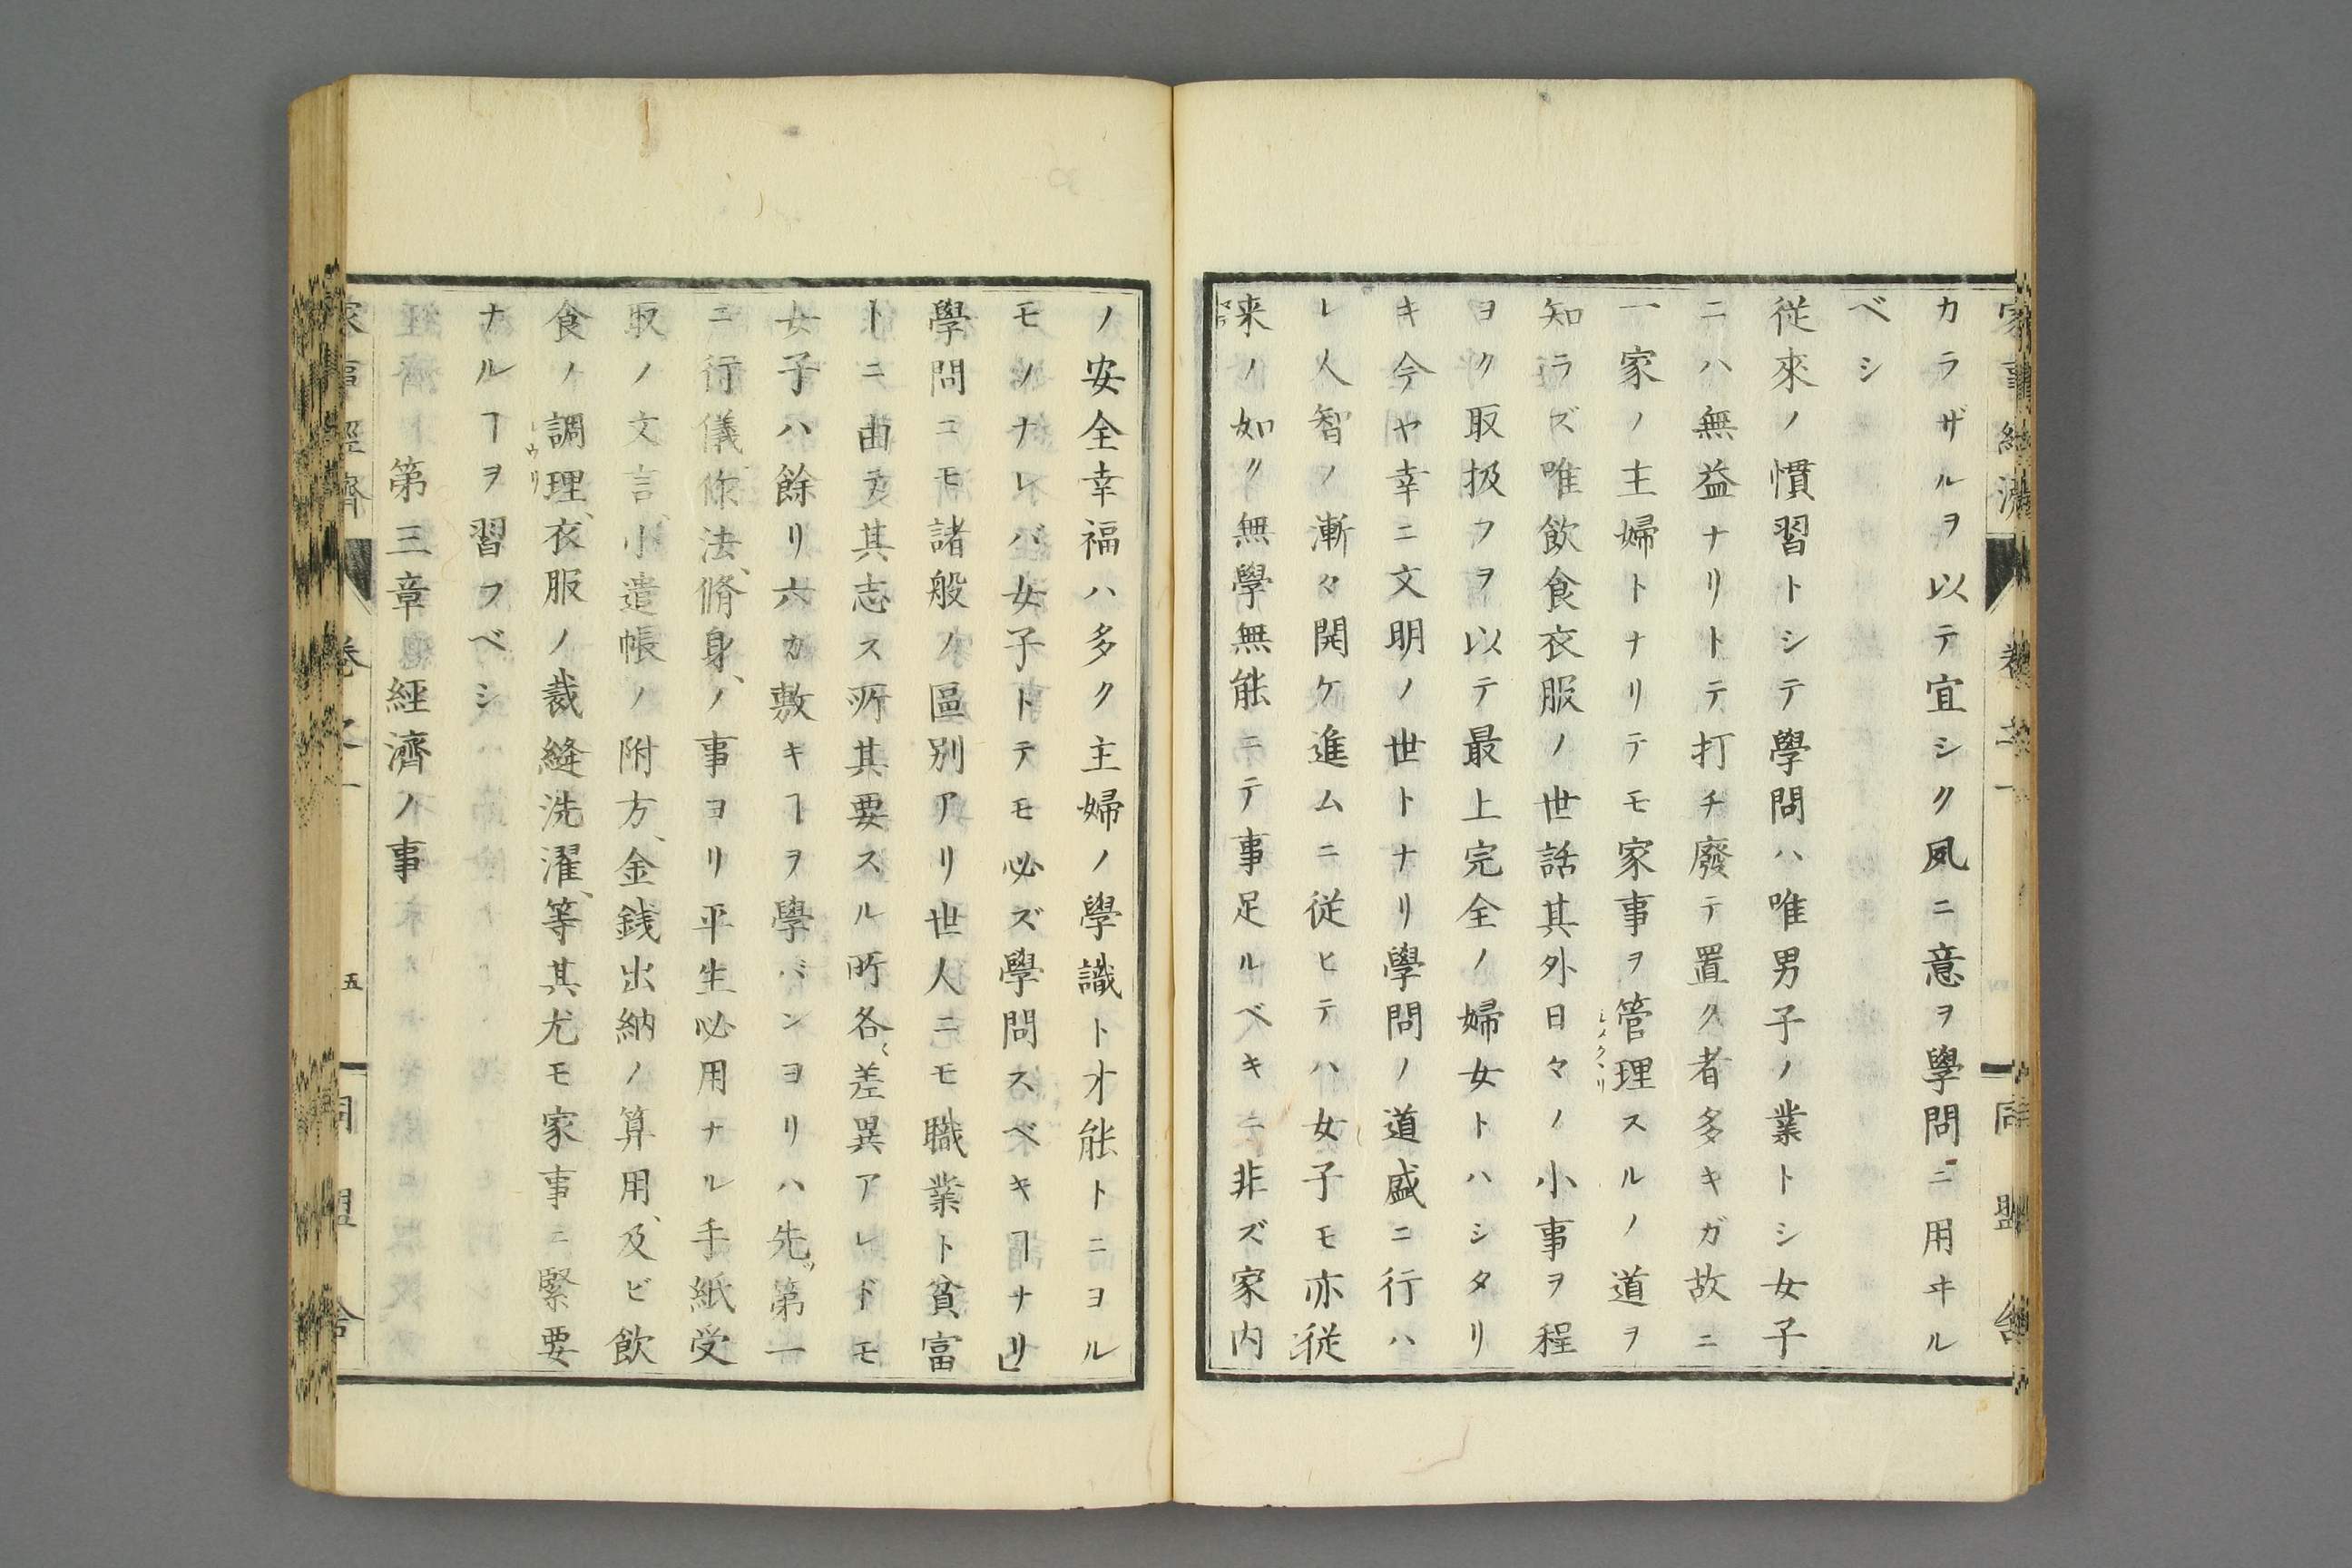 カラザルヲ以テ宜シク夙ニ意ヲ學問ニ用ヰル
ベシ
従來ノ慣習トシテ學問ハ唯男子ノ業トシ女子
ニハ無益ナリトテ打チ廢テ置ク者多キガ故ニ
一家ノ主婦トナリテモ家事ヲ管理スルノ道ヲ
知ラズ唯飲食衣服ノ世話其外日々ノ小事ヲ程
ヨク取扱フヲ以テ最上完全ノ婦女トハシタリ
キ今ヤ幸ニ文明ノ世トナリ學問ノ道盛ニ行ハ
レ人智ノ漸々開ケ進ムニ従ヒテハ女子モ亦従
来ノ如ク無學無能ニテ事足ルベキニ非ズ家内
ノ安全幸福ハ多ク主婦ノ學識ト才能トニヨル
モノナレバ女子トテモ必ズ學問スベキヿナリ」
學問ニモ諸般ノ區別アリ世人ニモ職業ト貧富
トニ由テ其志ス所其要スル所各〻差異アレドモ
女子ハ餘リ六カ敷キヿヲ學バンヨリハ先ヅ第一
ニ行儀、作法、脩身、ノ事ヨリ平生必用ナル手紙受
取ノ文言、小遣帳ノ附方、金銭出納ノ算用、及ビ飲
食ノ調理、衣服ノ裁縫洗濯、等其尤モ家事ニ緊要
ナルヿヲ習フベシ
第三章 經濟ノ事
家事經濟 巻之一 五 同盟舎